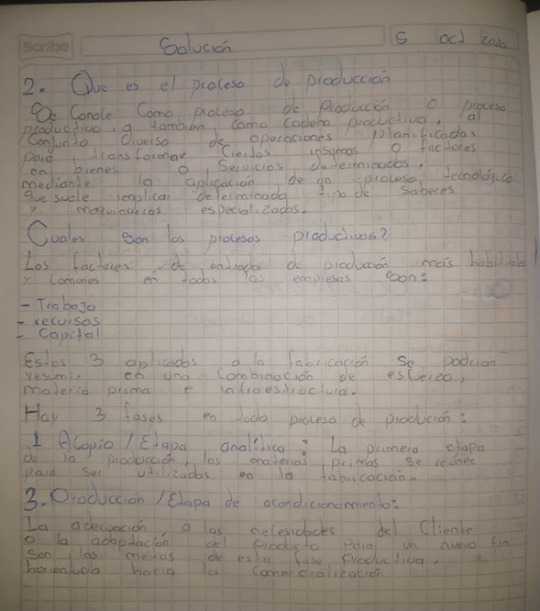 Scribe Solución 5 oct 2020
2. Que es el proceso de producción
Se Conoce Como proceso de Producción o proceso
productivo, o también como cadena productiva, al
Conjunto diverso de operaciones planificadas
para transformar Ciertos insumos o factores
en bienes o Servicios determinados,
mediante la aplicación de un proceso tecnológico
que suele implicar determinado tipo de saberes
y maquinarias especializados.
Cuales son los procesos productivos?
Los factores de entrada de producción más habituales
y Comunes en todas las empresas son:
- Trabajo
- recursos
- Capital
Estos 3 aplicados a la fabricación se podrian
resumir en una Combinación de esfuerzo,
materia prima e infraestructura.
Hay 3 fases en todo proceso de producción:
1 Acopio / Etapa analítica: La primera etapa
de la producción, las materias primas se reúnen
para ser utilizados en la fabricación.
3. Producción / Etapa de acondicionamiento:
La adecuación a las necesidades del Cliente
o la adaptación del producto para un nuevo fin
Son las metas de esta fase Productiva.
hacia la Comercialización